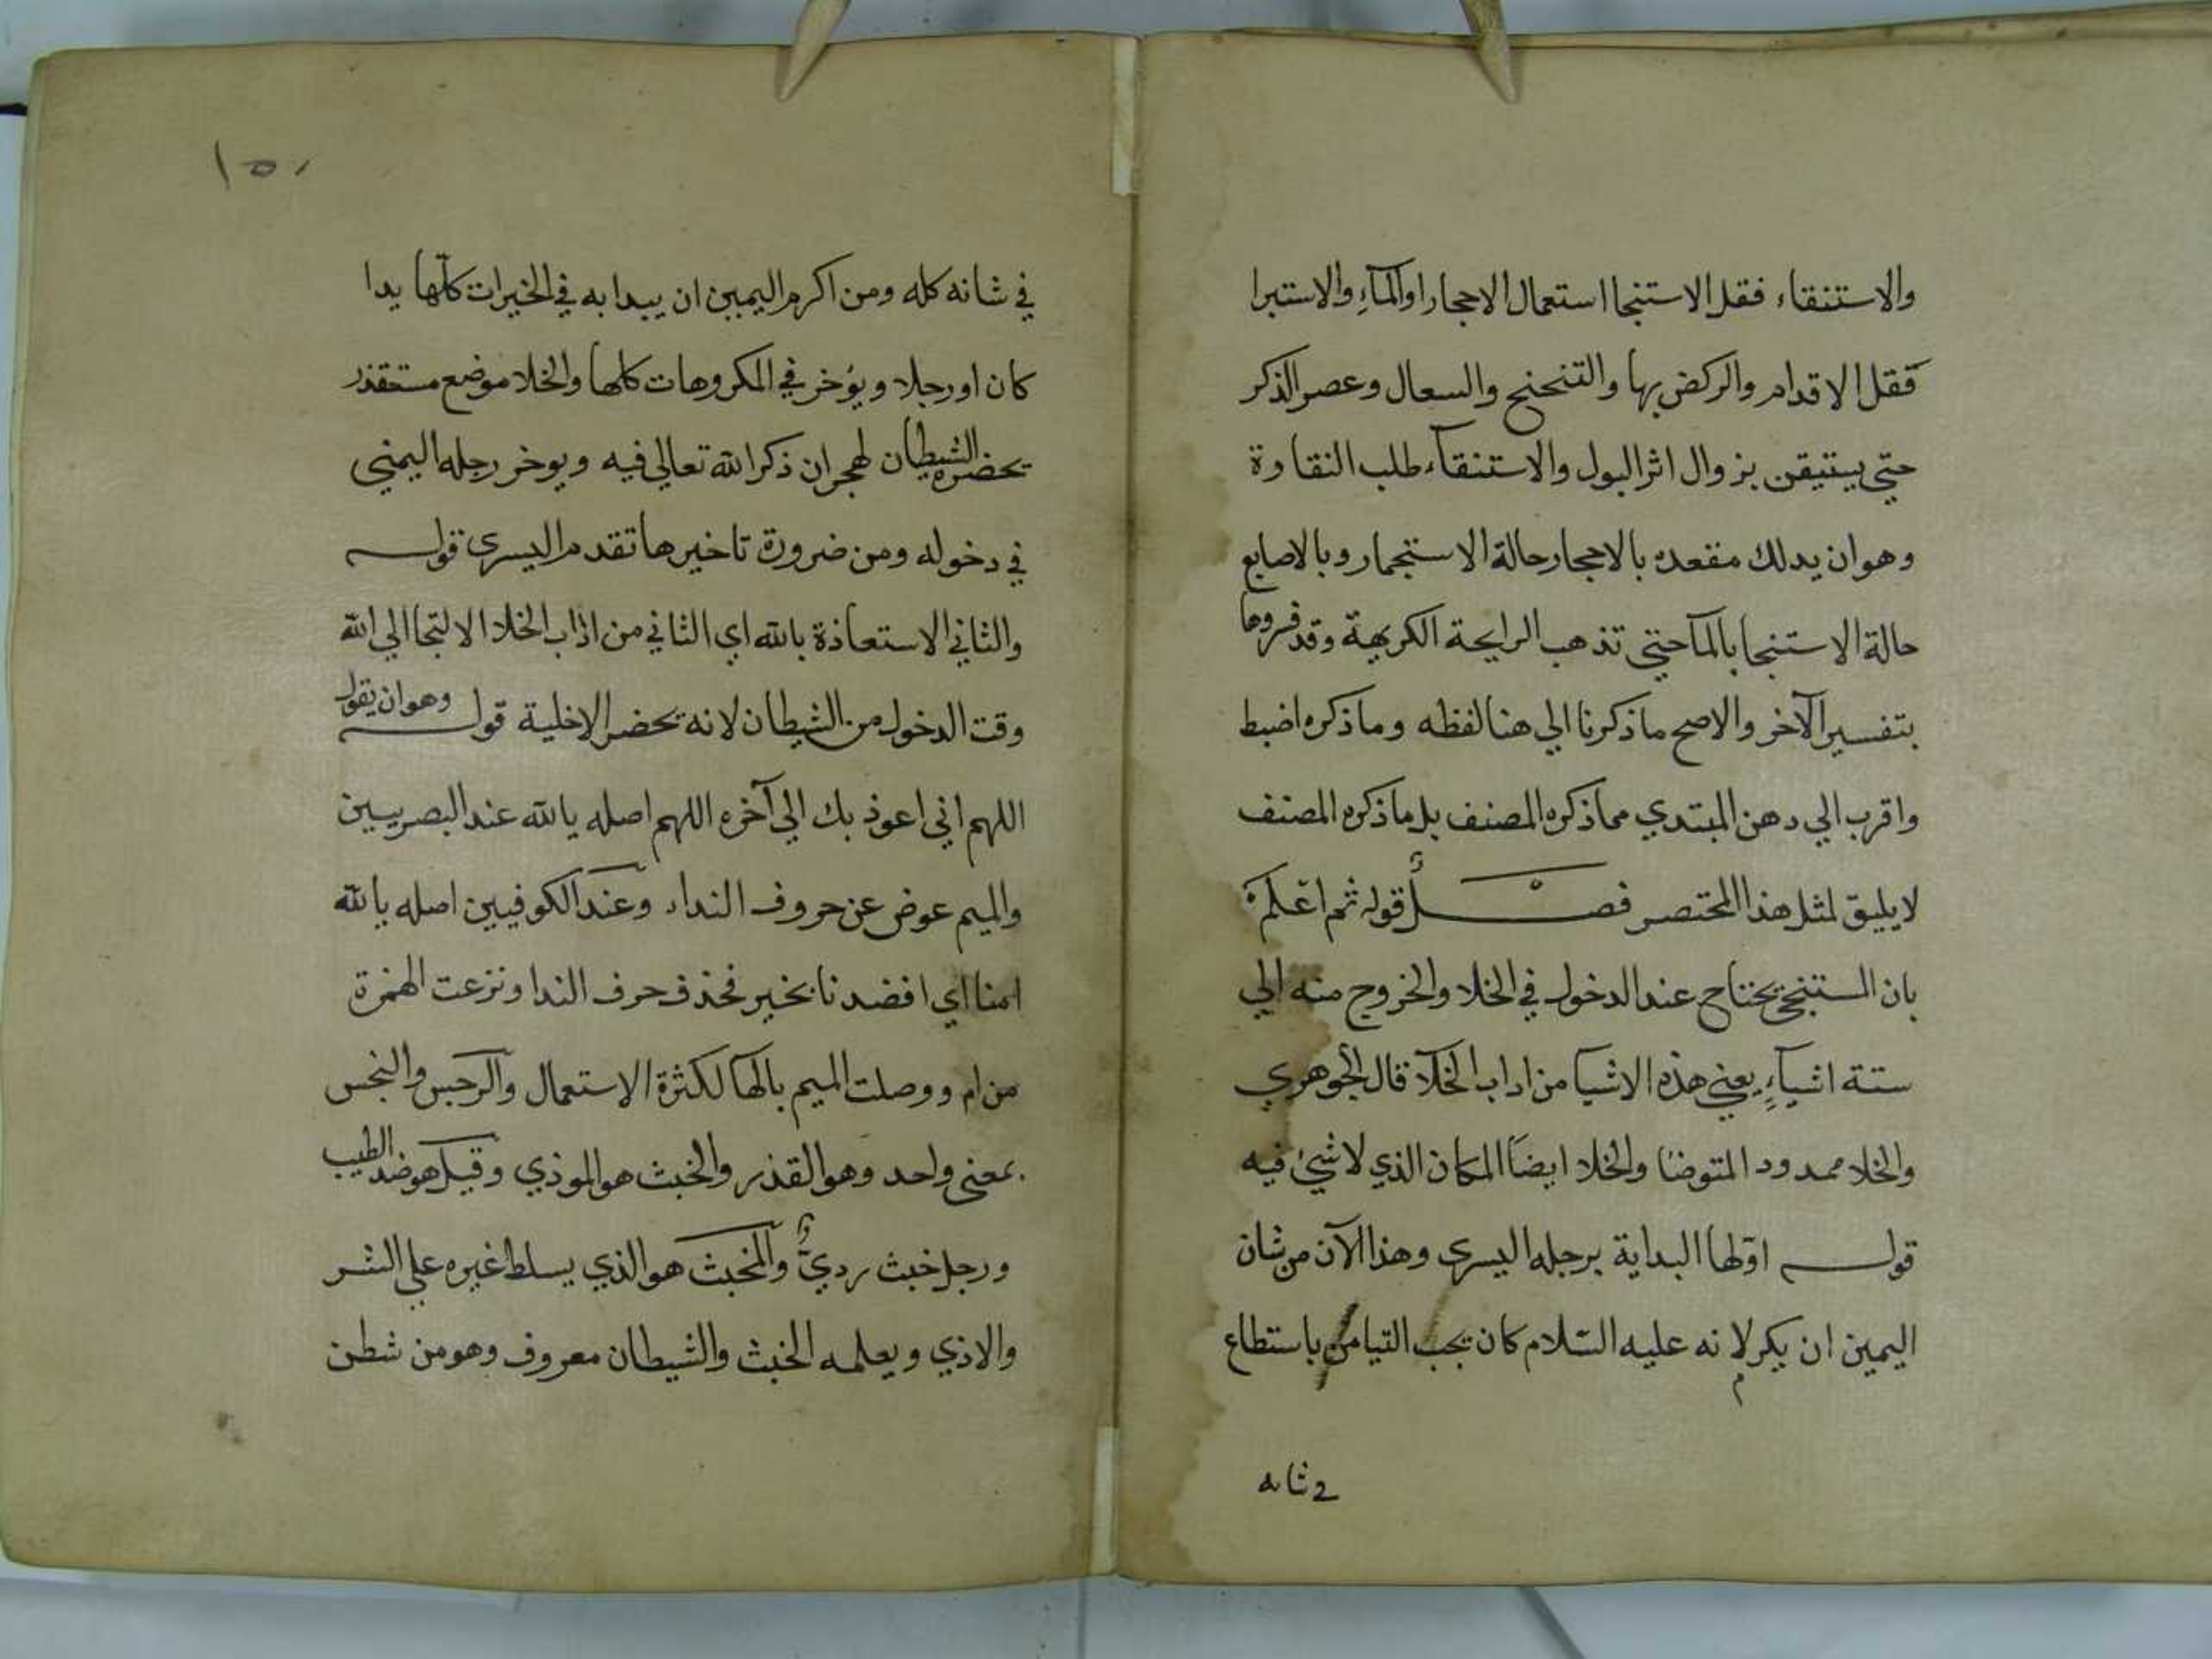 والاستنقاء فقل الاستنجا استعمال الاحجار او المآءِ والاستبرا
فقل الاقدام والركض بها والتنحنح والسعال وعصر الذكر
حتي يستيقن بزوال اثر البول والاستنقآء طلب النقاوة
وهو ان يدلك مقعده بالاحجار حالة الاستجمار وبالاصابع
حالة الاستنجا بالمآ حتي تذهب الرايحة الكريهة وقد فروها
بتفسير الآخر والاصح ما ذكرنا الي هنا لفظه وما ذكره اضبط
واقرب الي دهن المبتدي مما ذكره المصنف بل ما ذكره المصنف
لا يليق لمثل هذا المختصر فصْـــلٌ قوله ثم اعلم
بان المستنجي يحتاج عند الدخول في الخلا والخروج منه الي
ستة اشيآءٍ يعني هذه الاشيا من اداب الخلآ قال الجوهري
والخلا ممدود المتوضا والخلا ايضًا المكان الذي لا شيئ فيه
قولـــه اوّلها البداية برجله اليسرى وهذا الآن من شان
اليمين ان يكرم لانه عليه السّلام كان يحب التيامن باستطاع
في شانه
١٥٠
في شانه كله ومن اكرم اليمين ان يبدا به في الخيرات كلّها يدا
كان او رجلا ويؤخر في المكروهات كلها والخلا موضع مستقذر
يحضره الشيطان لهجران ذكر الله تعالي فيه ويوخر رجله اليمني
في دخوله ومن ضرورة تاخيرها تقدم اليسرى قولـــه
والثاني الاستعاذة بالله اي الثاني من اداب الخلا الالتجا الي الله
وقت الدخول من الشيطان لانه يحضر الاخلية قولـــه وهو ان يقول
اللهم اني اعوذ بك الي آخره اللهم اصله يا الله عند البصريين
والميم عوض عن حروف النداء وعند الكوفيين اصله يا الله
امنا اي اقصدنا بخير فحذف حرف الندا ونزعت الهمزة
من ام ووصلت الميم بالها لكثرة الاستعمال والرجس والنجس
بمعنى واحد وهو القذر والخبث هو الموذي وقيل هو ضد الطيب
ورجل خبث رديٌّ والمخبث هو الذي يسلط غيره علي الشر
والاذي ويعلمه الخبث والشيطان معروف وهو من شطن